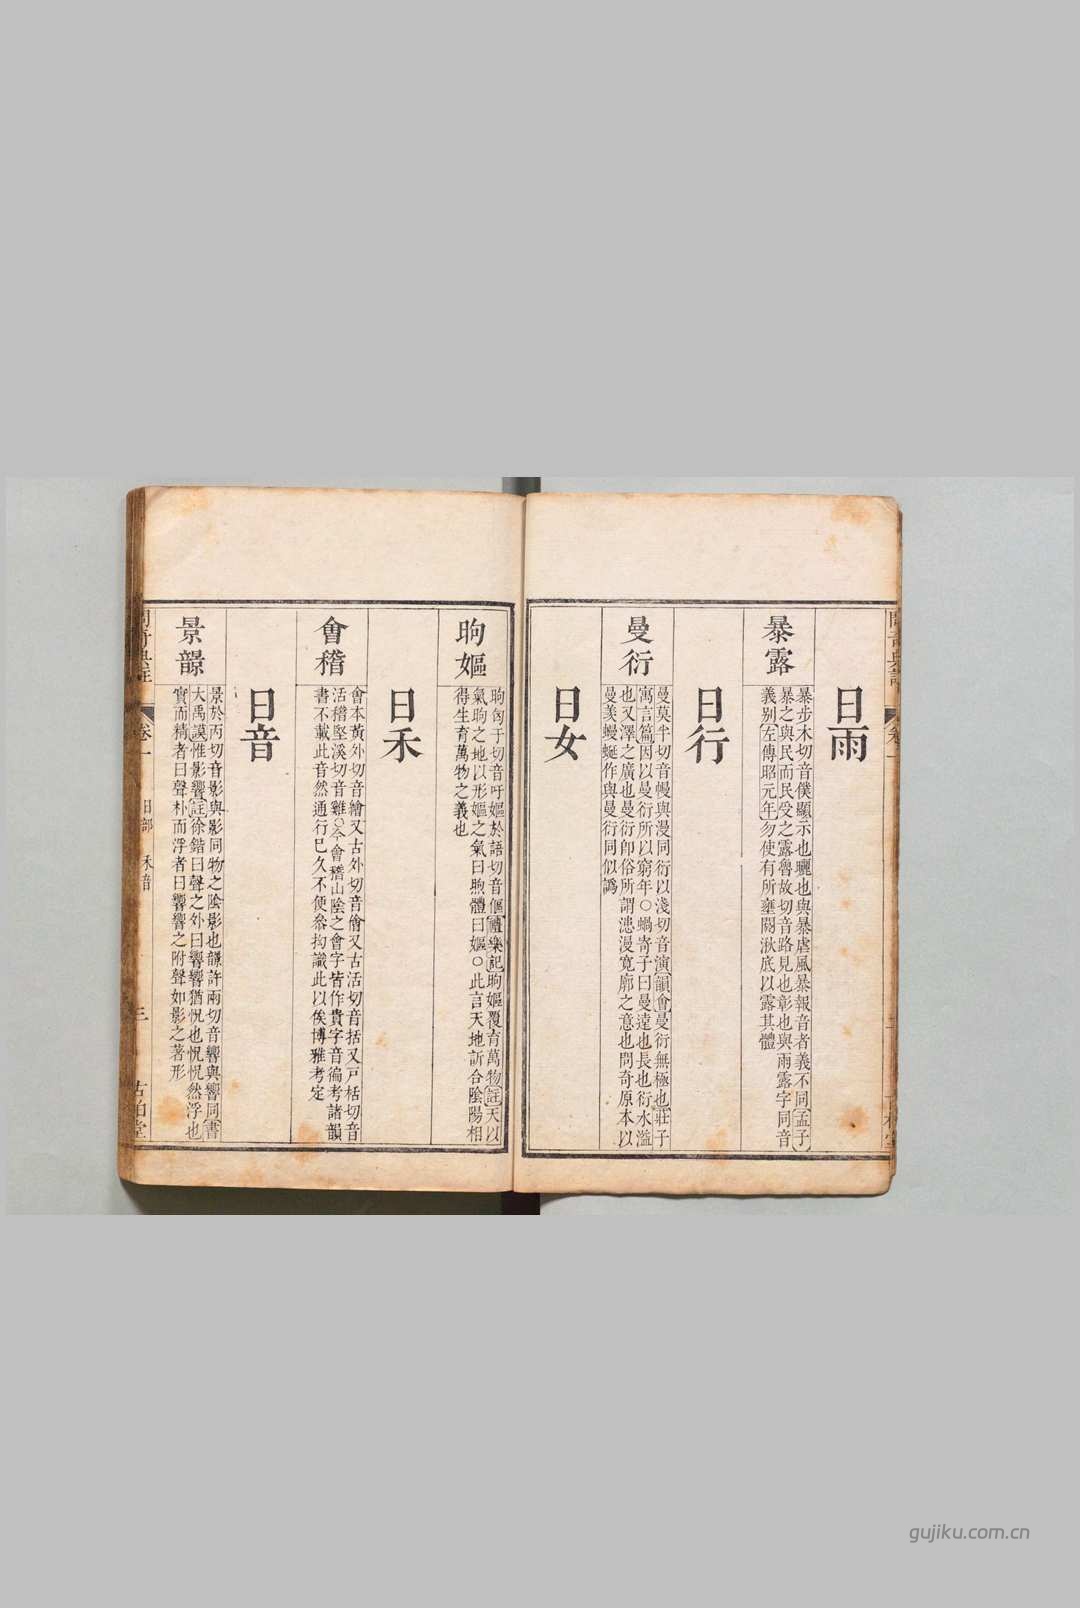 日雨
暴露
暴步木切音僕顯示也曬也與暴虐風暴報音者義不同孟子
暴之與民而民受之露魯故切音路見也彰也與雨露字同音
義别左傳昭元年勿使有所壅閼湫底以露其體
日行
曼衍
曼莫半切音幔與漫同衍以淺切音演韻會曼衍無極也莊子
寓言篇因以曼衍所以窮年○蝸寄子曰曼遠也長也衍水溢
也又澤之廣也曼衍卽俗所謂漶漫寬廓之意也問奇原本以
曼羨蟃蜒作與曼衍同似譌
日女
昫嫗
昫匈于切音吁嫗於語切音傴禮樂記昫嫗覆育萬物註天以
氣昫之地以形嫗之氣曰煦體曰嫗○此言天地訢合陰陽相
得生育萬物之義也
日禾
會稽
會本黃外切音繪又古外切音儈又古活切音括又戸栝切音
活稽堅溪切音雞○今會稽山陰之會字皆作貴字音徧考諸韻
書不載此音然通行已久不便叅拘識此以俟博雅考定
日音
景韻
景於丙切音影與影同物之陰影也韻許兩切音響與響同書
大禹謨惟影響註徐鍇曰聲之外曰響響猶怳也怳怳然浮也
實而精者曰聲朴而浮者曰響響之附聲如影之著形
卷一
日部
禾音
三
古柏堂
gujiku.com.cn